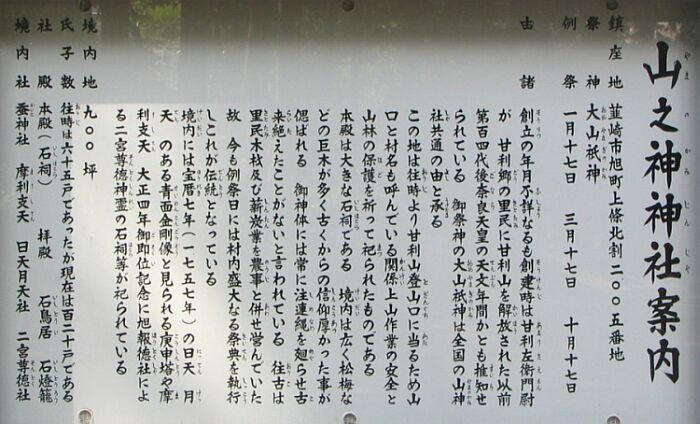 山之神神社案内
鎮座地 韮崎市旭町上條北割二〇〇五番地
祭神 大山祇神
例祭 一月十七日 三月十七日 十月十七日
由諸 創立の年月不詳なるも創建時は甘利左衛門尉
が 甘利郷の里民に甘利山を解放された以前
第百四代後奈良天皇の天文年間かとも推知せ
られている 御祭神の大山祇神は全国の山神
社共通の由と承る
この地は往時より甘利山登山口に当るため山
口と村名も呼んでいる関係上山作業の安全と
山林の保護を祈って祀られたものである
本殿は大きな石祠である 境内は広く松梅な
どの巨木が多く古くからの信仰厚かった事が
偲ばれる 御神体には常に注連縄を廻らせ古
来絶えたことがないと言われている 往古は
里民木材及び薪炭業を農事と併せ営んでいた
故 今も例祭日には村内盛大なる祭典を執行
しこれが伝統となっている
境内には宝暦七年(一七五七年)の日天 月
天 のある青面金剛像と見られる庚申塔や摩
利支天 大正四年御即位記念に旭報徳社によ
る二宮尊徳神霊の石祠等が祀られている
境内地 九〇〇坪
氏子数 往時は六十五戸であったが現在は百二十戸である
社殿 本殿(石祠) 拝殿 石鳥居 石燈籠
境内社 蚕神社 摩利支天 日天月天社 二宮尊徳社